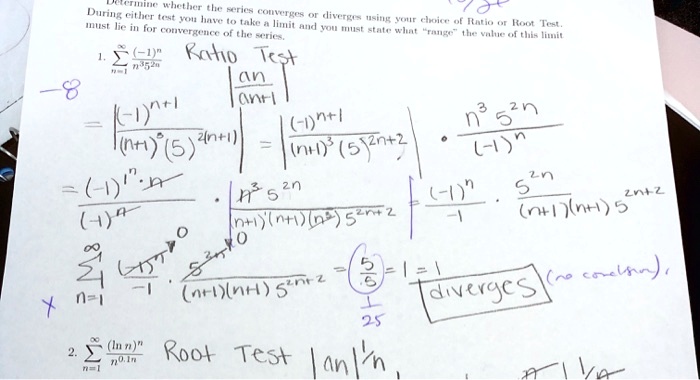 Determine whether the series converges or diverges using your choice of Ratio or Root Test.
During either test you have to take a limit and you must state what "range" the value of this limit
must lie in for convergence of the series.
1. ∑_{n=1}^{∞} (-1)^n / n^3 5^{2n} Ratio Test
|an / an+1|
-8
= |(-1)^{n+1} / (n+1)^3 (5)^{2(n+1)}| = |(-1)^{n+1} / (n+1)^3 (5)^{2n+2}| · n^3 5^{2n} / (-1)^n
= (-1)^{1^n} · n / (-1)^n · |n^3 5^{2n} / (n+1)(n+1)(n^3) 5^{2n+2}| = (-1)^n / -1 · 5^{2n} / (n+1)(n+1) 5^{2n+2}
∑_{n=1}^{∞} (-1)^n / -1 · 5^{2n} / (n+1)(n+1) 5^{2n+2} = (5/5) = 1 = 1
0 0
diverges (no conclusion),
x
1/25
2. ∑_{n=1}^{∞} (ln n)^n / n^{0.1n} Root Test |an|^{1/n},